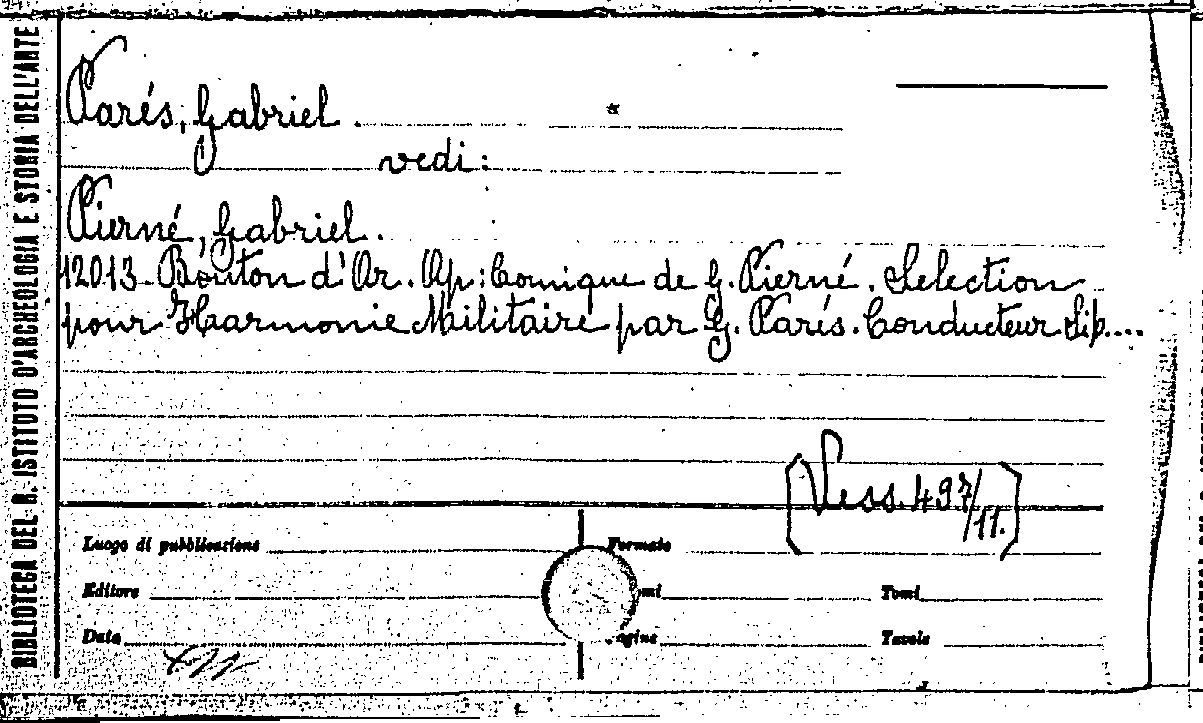 BIBLIOTECA DEL R. ISTITUTO D'ARCHEOLOGIA E STORIA DELL'ARTE
Parés, Gabriel.
vedi:
Pierné, Gabriel.
12013 - Bouton d'Or. Op: Comique de G. Pierné. Selection
pour Harmonie Militaire par G. Parés. Conducteur Sib....
[Vess. 497/11.]
Luogo di pubblicazione Formato
Editore Tomi
Data Tavole